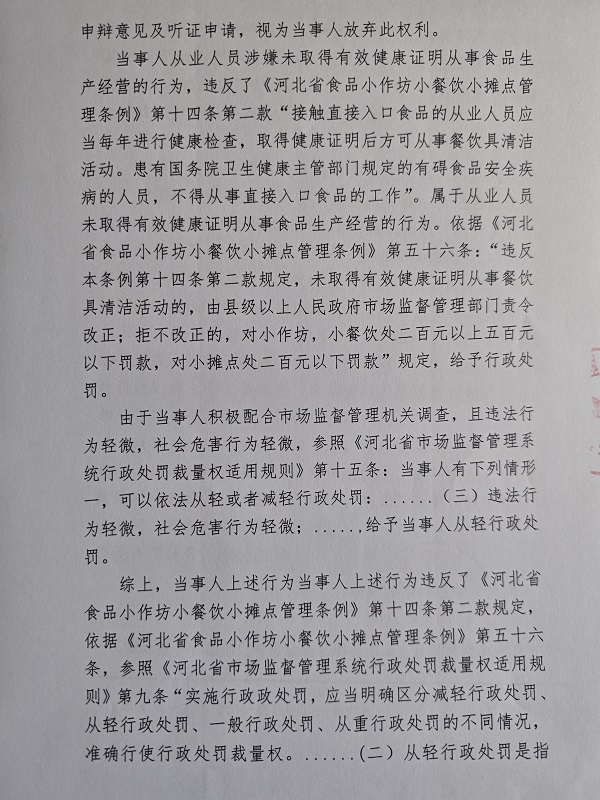 申辩意见及听证申请，视为当事人放弃此权利。
当事人从业人员涉嫌未取得有效健康证明从事食品生
产经营的行为，违反了《河北省食品小作坊小餐饮小摊点管
理条例》第十四条第二款“接触直接入口食品的从业人员应
当每年进行健康检查，取得健康证明后方可从事餐饮具清洁
活动。患有国务院卫生健康主管部门规定的有碍食品安全疾
病的人员，不得从事直接入口食品的工作”。属于从业人员
未取得有效健康证明从事食品生产经营的行为。依据《河北
省食品小作坊小餐饮小摊点管理条例》第五十六条：“违反
本条例第十四条第二款规定，未取得有效健康证明从事餐饮
具清洁活动的，由县级以上人民政府市场监督管理部门责令
改正；拒不改正的，对小作坊，小餐饮处二百元以上五百元
以下罚款，对小摊点处二百元以下罚款”规定，给予行政处
罚。
由于当事人积极配合市场监督管理机关调查，且违法行
为轻微，社会危害行为轻微，参照《河北省市场监督管理系
统行政处罚裁量权适用规则》第十五条：当事人有下列情形
一，可以依法从轻或者减轻行政处罚：......（三）违法行
为轻微，社会危害行为轻微；.....,给予当事人从轻行政处
罚。
综上，当事人上述行为当事人上述行为违反了《河北省
食品小作坊小餐饮小摊点管理条例》第十四条第二款规定，
依据《河北省食品小作坊小餐饮小摊点管理条例》第五十六
条，参照《河北省市场监督管理系统行政处罚裁量权适用规
则》第九条“实施行政政处罚，应当明确区分减轻行政处罚、
从轻行政处罚、一般行政处罚、从重行政处罚的不同情况，
准确行使行政处罚裁量权。......(二）从轻行政处罚是指